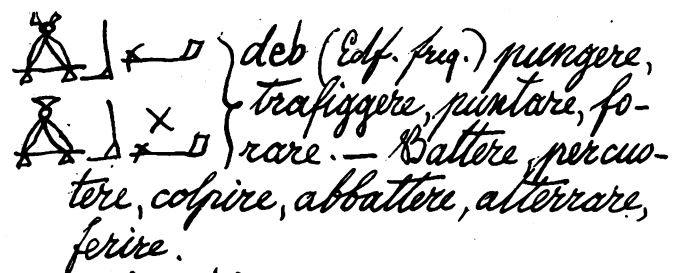 deb (Edf. freq.) pungere,
trafiggere, puntare, fo-
rare. — Battere, percuo-
tere, colpire, abbattere, atterrare,
ferire.